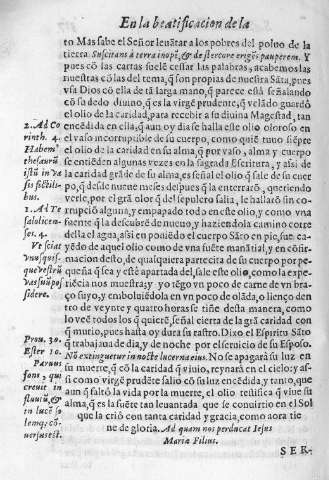 En la beatificacion de la
to Mas sabe el Señor leuãtar a los pobres del poluo de la
tierra. Suscitans à terra inopẽ, & de stercore erigẽs pauperem. Y
pues cõ las cartas suelẽ cessar las palabras, acabemos las
nuestras cõ las del tema, q̃ son propias de nuestra Sãta, pues
vſ̃ Dios cõ ella de tã larga mano, q̃ parece està señalando
cõ su dedo diuino, q̃ es la virgẽ prudente, q̃ velãdo guardó
el olio de la caridad, para recebir a su diuina Magestad, tan
encẽdida en ella, q̃ aun oy dia se halla este olio oloroso en
el vaso incorruptible de su cuerpo, como quiẽ tuuo siẽpre
el olio de la caridad en su alma, q̃ por vaso, alma y cuerpo
se entiẽden algunas vezes en la sagrada Escritura, y assi de
la caridad grãde de su alma, es señal el olio q̃ sale de su cuer
po, q̃ desde nueue meses despues q̃ la enterrarõ, queriendo
verle, por el grã olor del sepulcro salia, le hallarõ sin cor
rupción alguna, y empapado todo en este olio, y como vna
fuente q̃ la descubrẽ de nueuo, y haziendola camino corre
della el agua, assi en poniẽdo el cuerpo Sãto en pie, fue ca-
yẽdo de aquel olio como de vna fuẽte manãtial, y en cõfir-
macion desto, de qualquiera partecita de su cuerpo por pe-
queña q̃ sea y estè apartada del, sale este olio, como la expe
riẽcia nos muestra; y yo tẽgo vn poco de carne de vn bra-
ço suyo, y emboluiẽdola en vn poco de olãda, o lienço den
tro de veynte y quatro horas se tiñe desta manera, como
lo veẽ todos los q̃ quierẽ, señal cierta de la grã caridad con
q̃ murio, pues hasta oy dura su rastro. Dixo el Espiritu Sãto
q̃ trabajaua de dia, y de noche por el seruicio de su Esposo.
Nõ extinguetur in nocte lucerna eius. No se apagará su luz en
su muerte, q̃ cõ la caridad q̃ viuio, reynará en el cielo: y as-
si como virgẽ prudẽte salio cõ su luz encẽdida, y tanto, que
aun q̃ faltò la vida por la muerte, el olio testifica q̃ viue su
alma, q̃ es la fuẽte tan leuantada que se conuirtio en el Sol
que la criò con tanta caridad y gracia, como aora tie
ne de gloria. Ad quam nos perducat Iesus
Mariæ Filius.
SER-
2. Ad Co
rinth. 4.
Habem⁹
thesaurũ
istũ in va
sis fictili-
bus.
1. Ad Te
salonicen
ses. 4.
Vt sciat
vnusquis-
que vestrũ
vas suũ pos
sidere.
Prou. 30.
Ester 10.
Paruus
fons, qui
creuit in
fluuiũ, &
in lucẽ so
lemq; cõ-
uersus est.